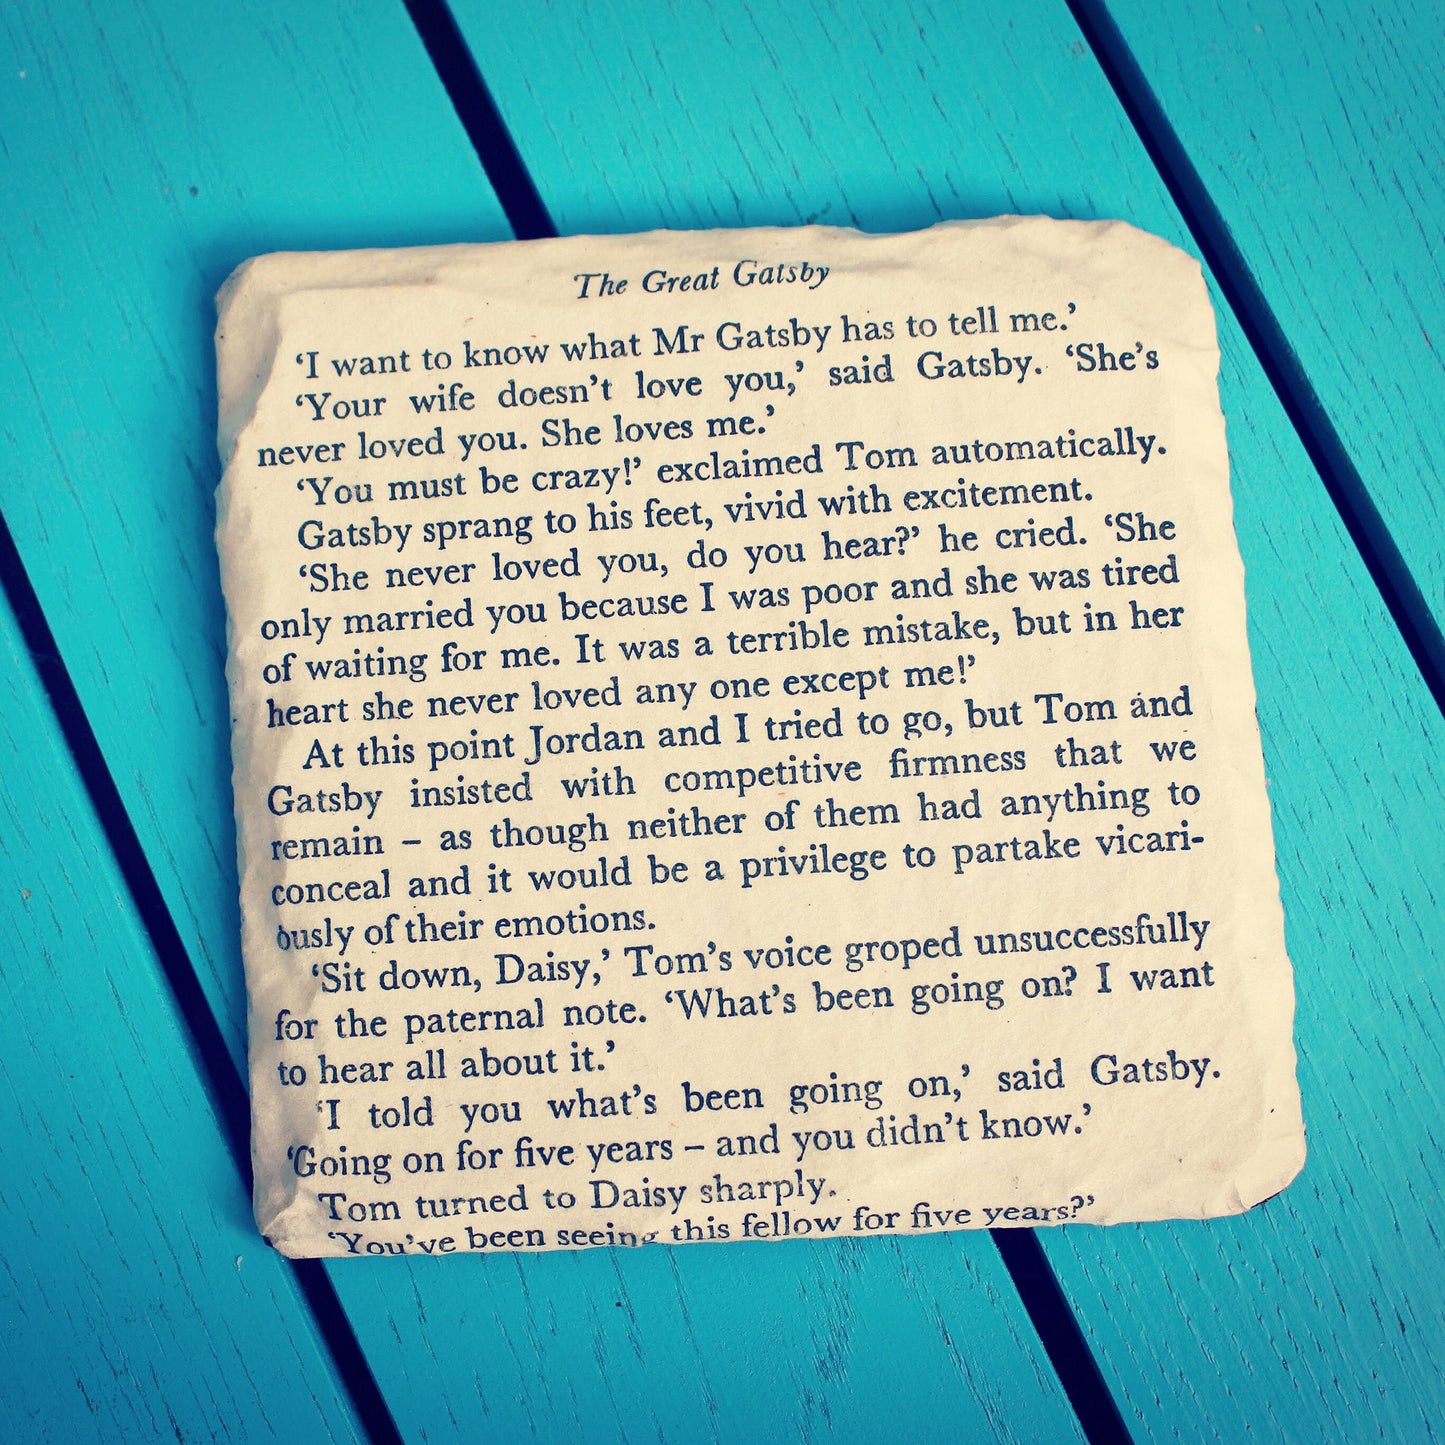 The Great Gatsby
‘I want to know what Mr Gatsby has to tell me.’
‘Your wife doesn’t love you,’ said Gatsby. ‘She’s
never loved you. She loves me.’
‘You must be crazy!’ exclaimed Tom automatically.
Gatsby sprang to his feet, vivid with excitement.
‘She never loved you, do you hear?’ he cried. ‘She
only married you because I was poor and she was tired
of waiting for me. It was a terrible mistake, but in her
heart she never loved any one except me!’
At this point Jordan and I tried to go, but Tom and
Gatsby insisted with competitive firmness that we
remain – as though neither of them had anything to
conceal and it would be a privilege to partake vicari-
ously of their emotions.
‘Sit down, Daisy,’ Tom’s voice groped unsuccessfully
for the paternal note. ‘What’s been going on? I want
to hear all about it.’
‘I told you what’s been going on,’ said Gatsby.
‘Going on for five years – and you didn’t know.’
Tom turned to Daisy sharply.
‘You’ve been seeing this fellow for five years?’